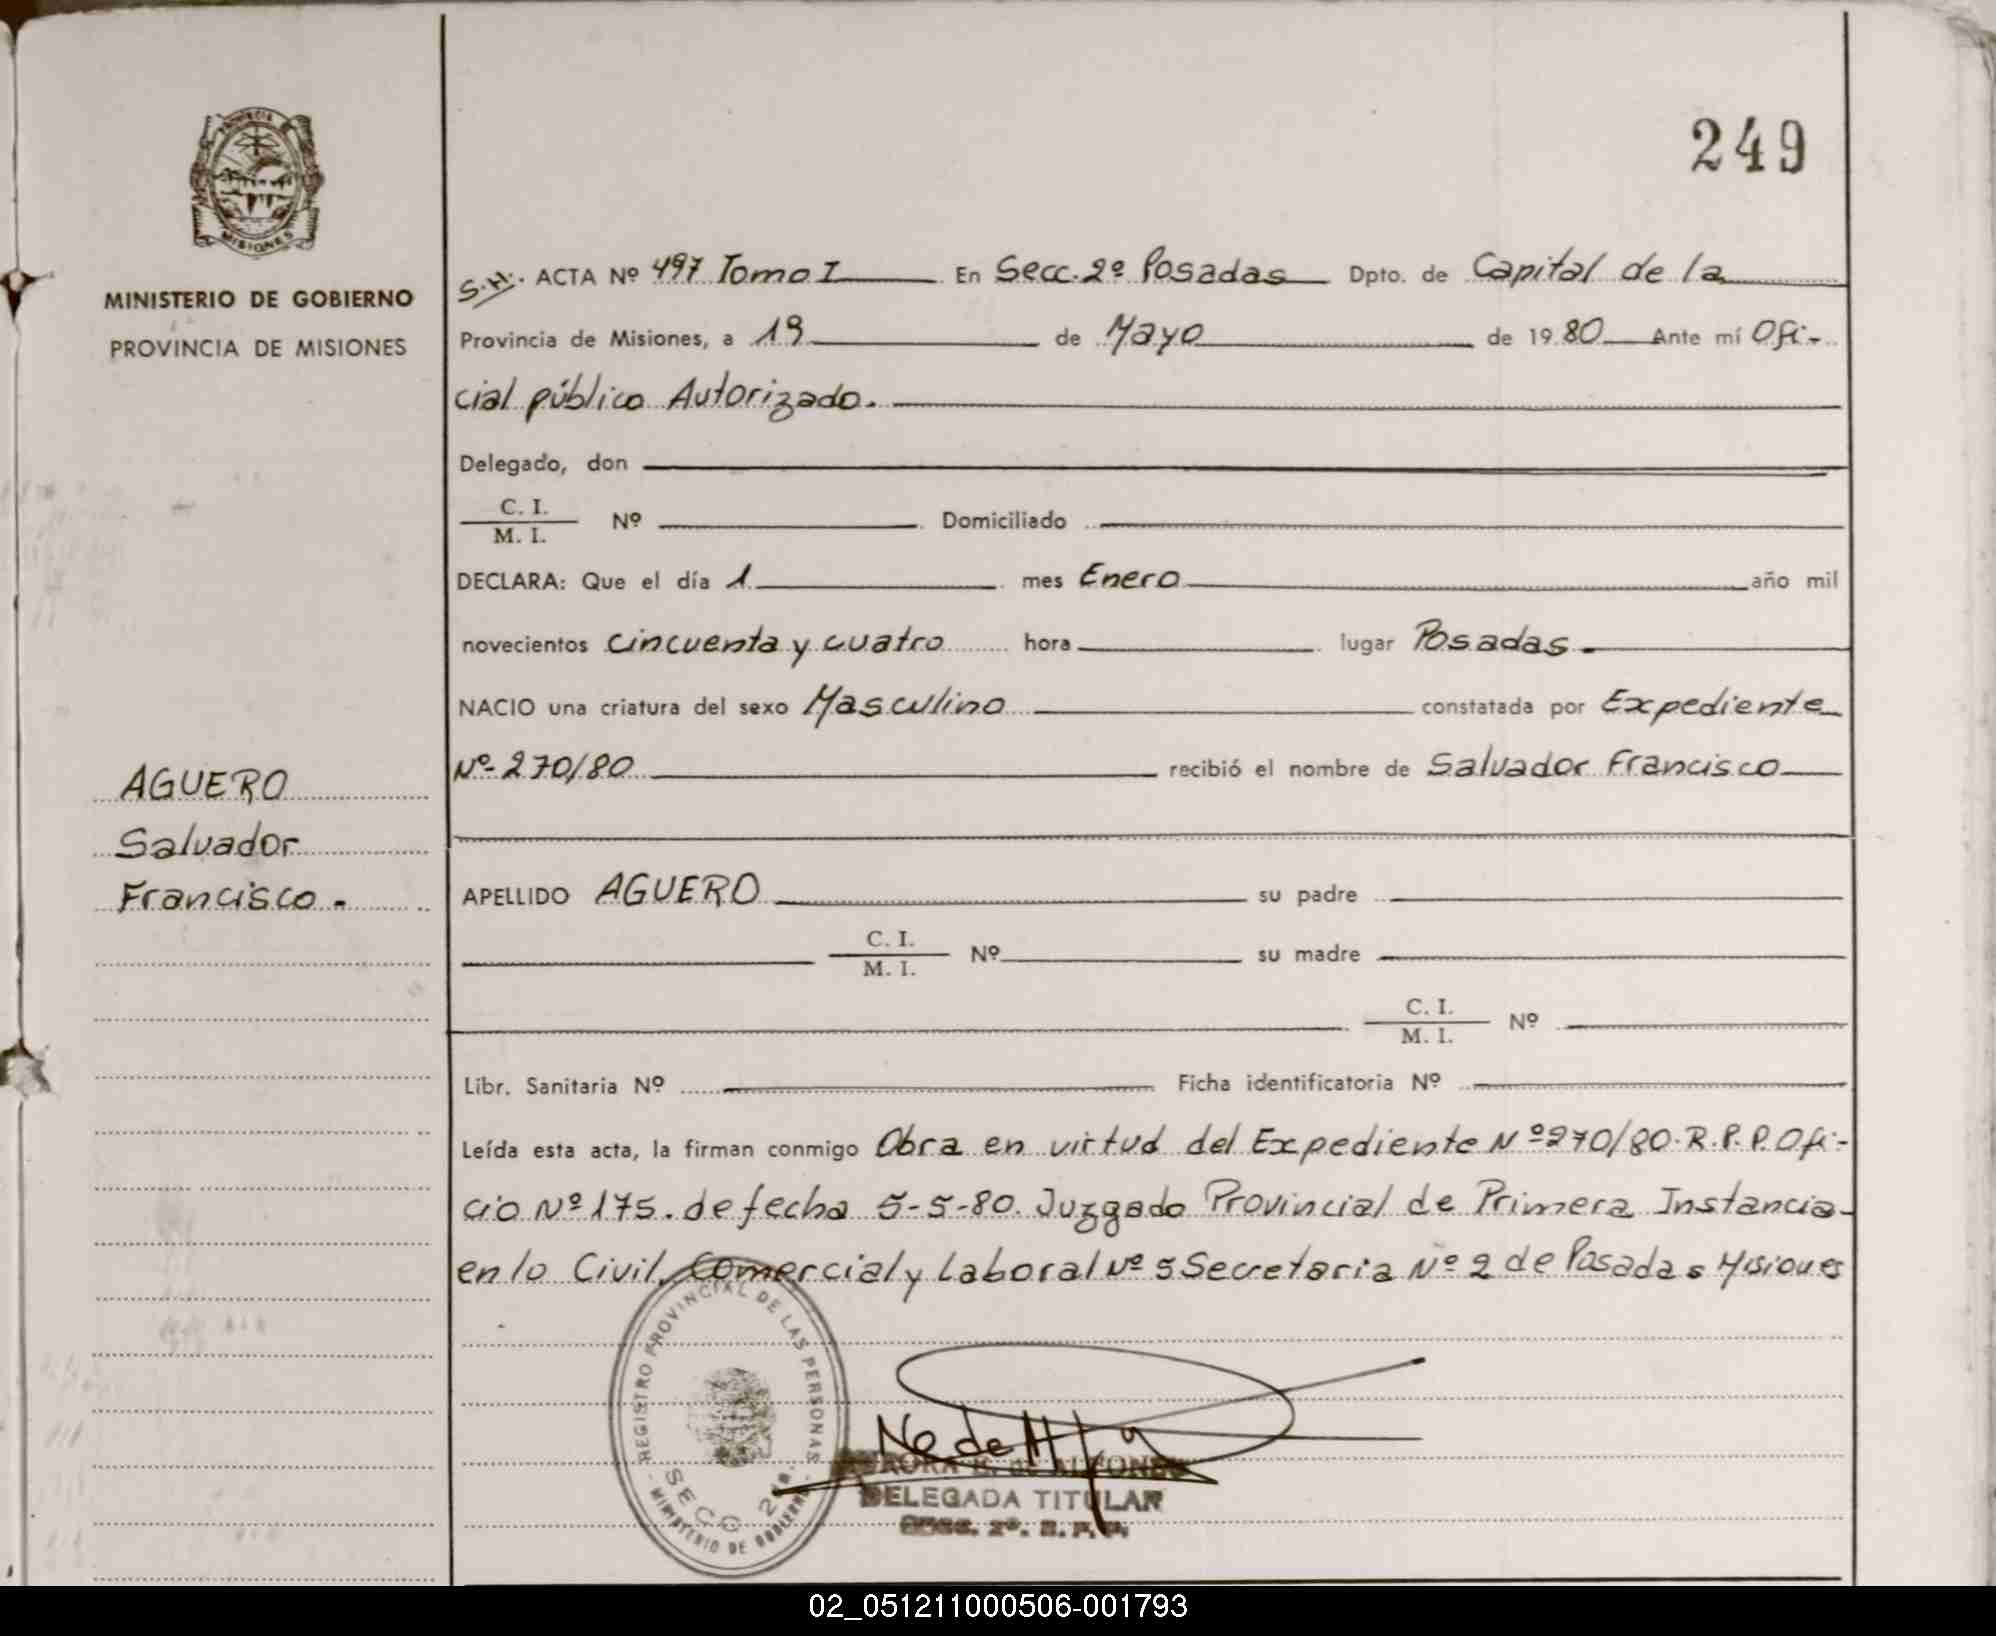 249
PROVINCIA DE
MISIONES
MINISTERIO DE GOBIERNO
PROVINCIA DE MISIONES
AGUERO
Salvador
Francisco.-
S.H. ACTA Nº 497 Tomo I En Secc. 2º Posadas Dpto. de Capital de la
Provincia de Misiones, a 19 de Mayo de 1980 Ante mí Ofi-
cial público Autorizado.
Delegado, don
C. I.
M. I. Nº Domiciliado
DECLARA: Que el día 1 mes Enero año mil
novecientos cincuenta y cuatro hora lugar Posadas.
NACIO una criatura del sexo Masculino constatada por Expediente
Nº 270/80 recibió el nombre de Salvador Francisco
APELLIDO AGUERO su padre
C. I.
M. I. Nº su madre
C. I.
M. I. Nº
Libr. Sanitaria Nº Ficha identificatoria Nº
Leída esta acta, la firman conmigo Obra en virtud del Expediente Nº 270/80. R.P.P. Ofi-
cio Nº 175. de fecha 5-5-80. Juzgado Provincial de Primera Instancia
en lo Civil, Comercial y Laboral Nº 5 Secretaria Nº 2 de Posadas Misiones
REGISTRO PROVINCIAL DE LAS PERSONAS
SECC 2
MINISTERIO DE GOBIERNO
de ALFONSO
DELEGADA TITULAR
02_051211000506-001793